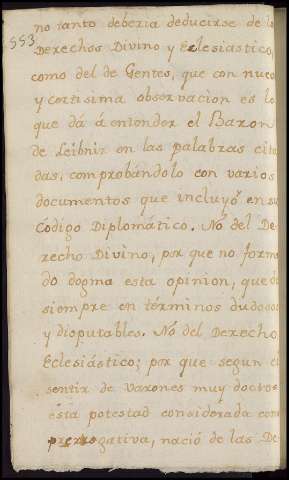 553
no tanto deberia deducirse de los
Derechos Divino y Eclesiastico,
como del de Gentes, que con nueva
y cortisima observacion es lo
que dá á entender el Baron
de Leibniz en las palabras cita
das, comprobándolo con varios
documentos que incluyó en su
Código Diplomático. Nó del De-
recho Divino, por que no forman
do dogma esta opinion, queda
siempre en términos dudosos
y disputables. Nó del Derecho
Eclesiástico; por que segun el
sentir de Varones muy doctos
esta potestad considerada como
prerrogativa, nació de las De-